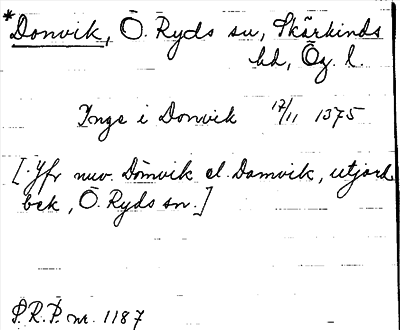 *Donvik, Ö. Ryds sn, Skärkinds
hd, Ög. l.
Inge i Donvik 17/11 1375
[Jfr nuv. Domvik el. Damvik, utjord
bek, Ö. Ryds sn.]
P.R.P. nr. 1187